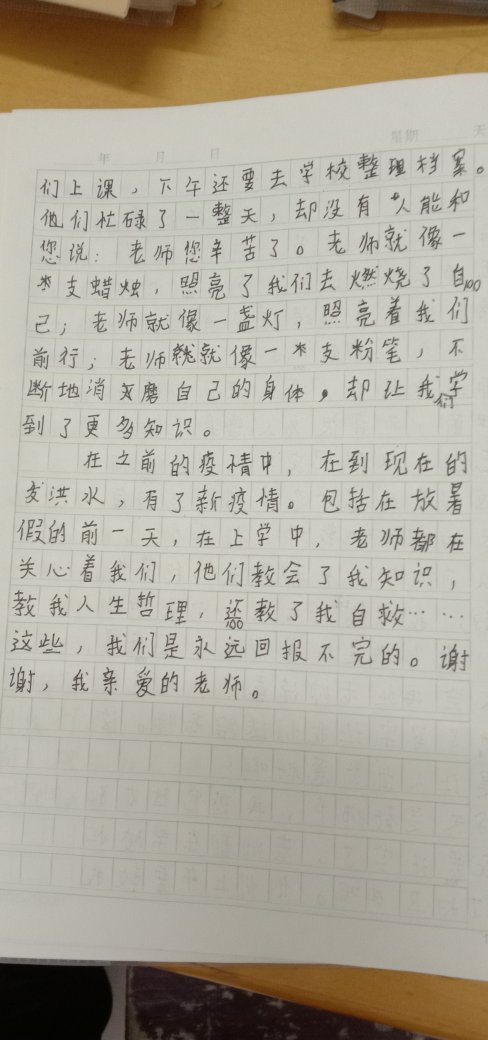 年 月 日 星期 天
们上课，下午还要去学校整理档案。
他们忙碌了一整天，却没有人能和
您说：老师您辛苦了。老师就像一
支蜡烛，照亮了我们去燃烧了自
100
己；老师就像一盏灯，照亮着我们
前行；老师就像一支粉笔，不
断地消磨自己的身体，却让我们学
到了更多知识。
在之前的疫情中，在到现在的
洪水，有了新疫情。包括在放暑
假的前一天，在上学中，老师都在
关心着我们，他们教会了我知识，
教我人生哲理，还教了我自救……
这些，我们是永远回报不完的。谢
谢，我亲爱的老师。